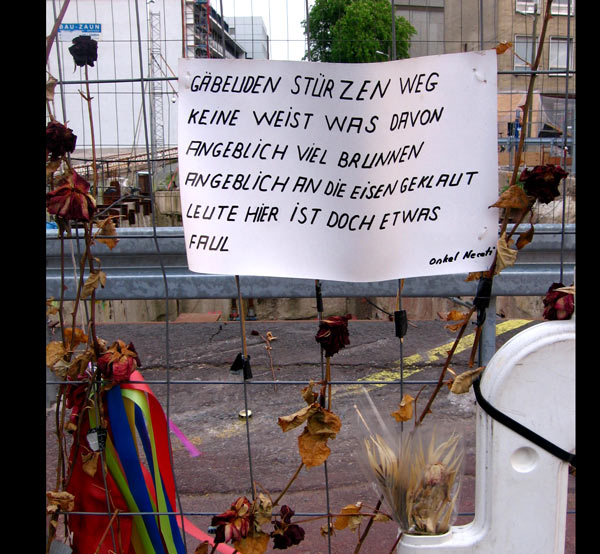 BAU-ZAUN
GÄBEUDEN STÜRZEN WEG
KEINE WEIST WAS DAVON
ANGEBLICH VIEL BRUNNEN
ANGEBLICH AN DIE EISEN GEKLAUT
LEUTE HIER IST DOCH ETWAS
FAUL
Onkel Necati